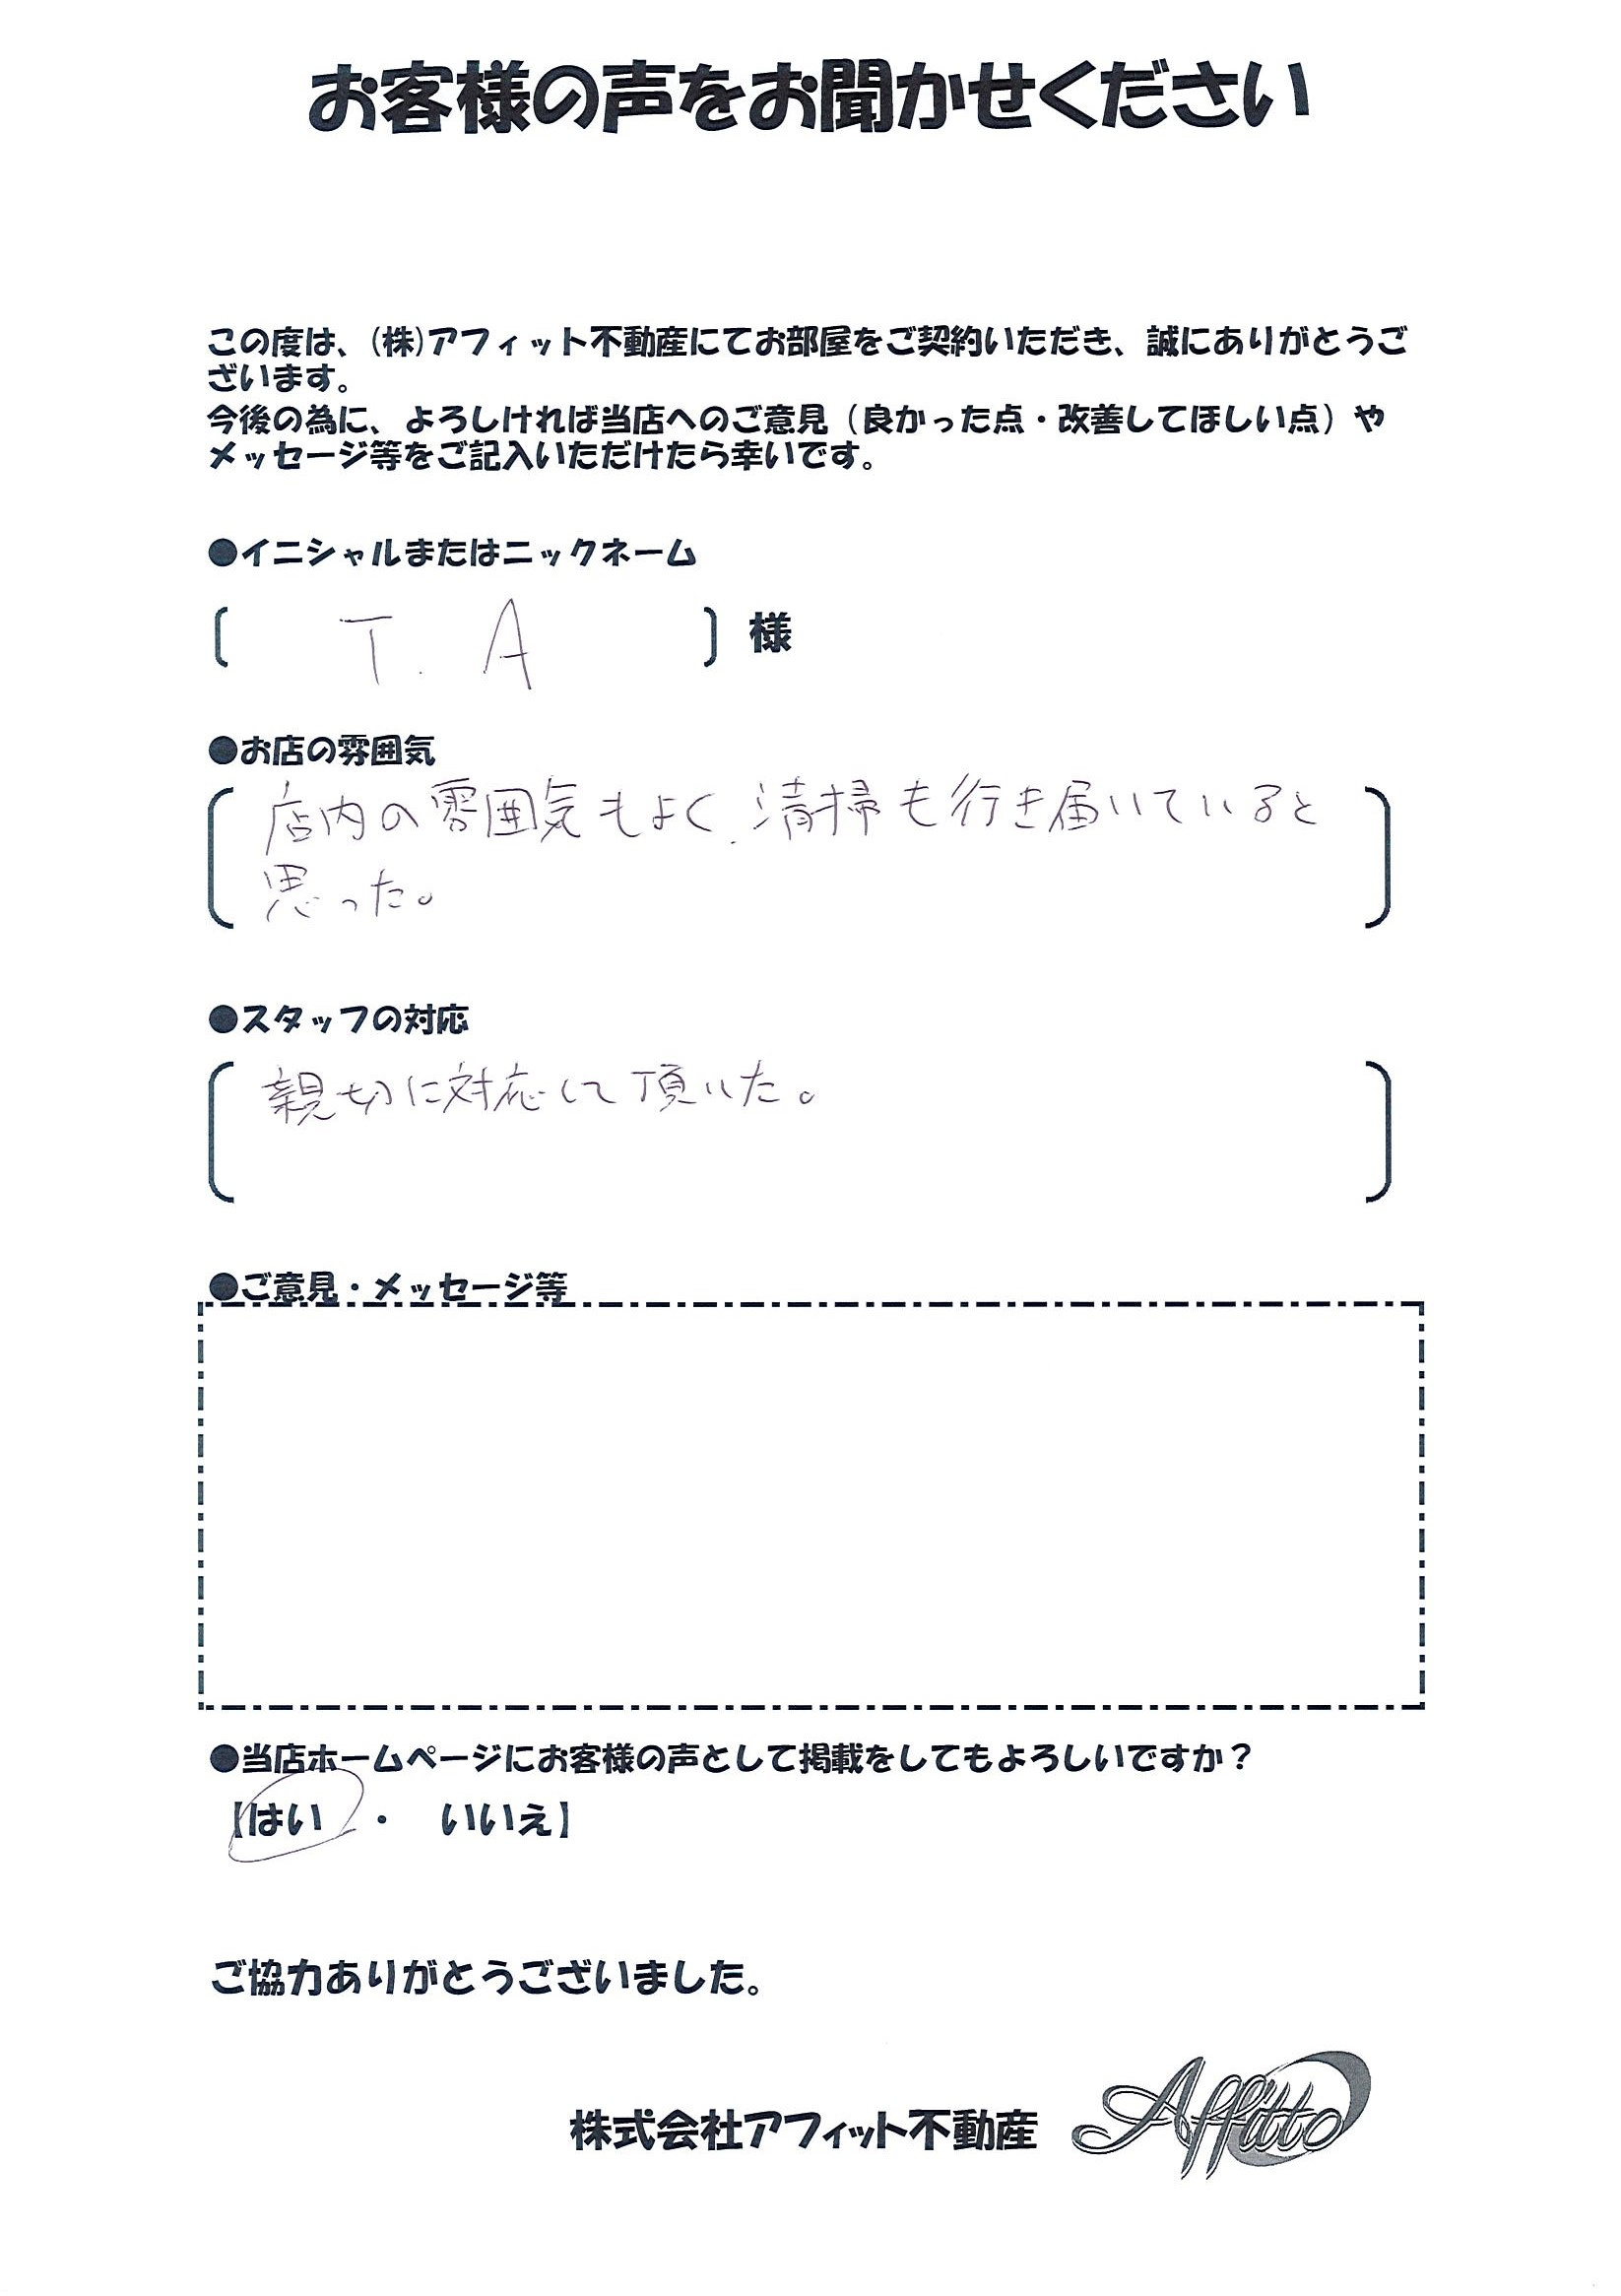 お客様の声をお聞かせください
この度は、(株)アフィット不動産にてお部屋をご契約いただき、誠にありがとうご
ざいます。
今後の為に、よろしければ当店へのご意見（良かった点・改善してほしい点）や
メッセージ等をご記入いただけたら幸いです。
●イニシャルまたはニックネーム
〔 T. A 〕様
●お店の雰囲気
店内の雰囲気もよく、清掃も行き届いていると
思った。
●スタッフの対応
親切に対応して頂いた。
●ご意見・メッセージ等
●当店ホームページにお客様の声として掲載をしてもよろしいですか？
【はい ・ いいえ】
ご協力ありがとうございました。
株式会社アフィット不動産 Affitto